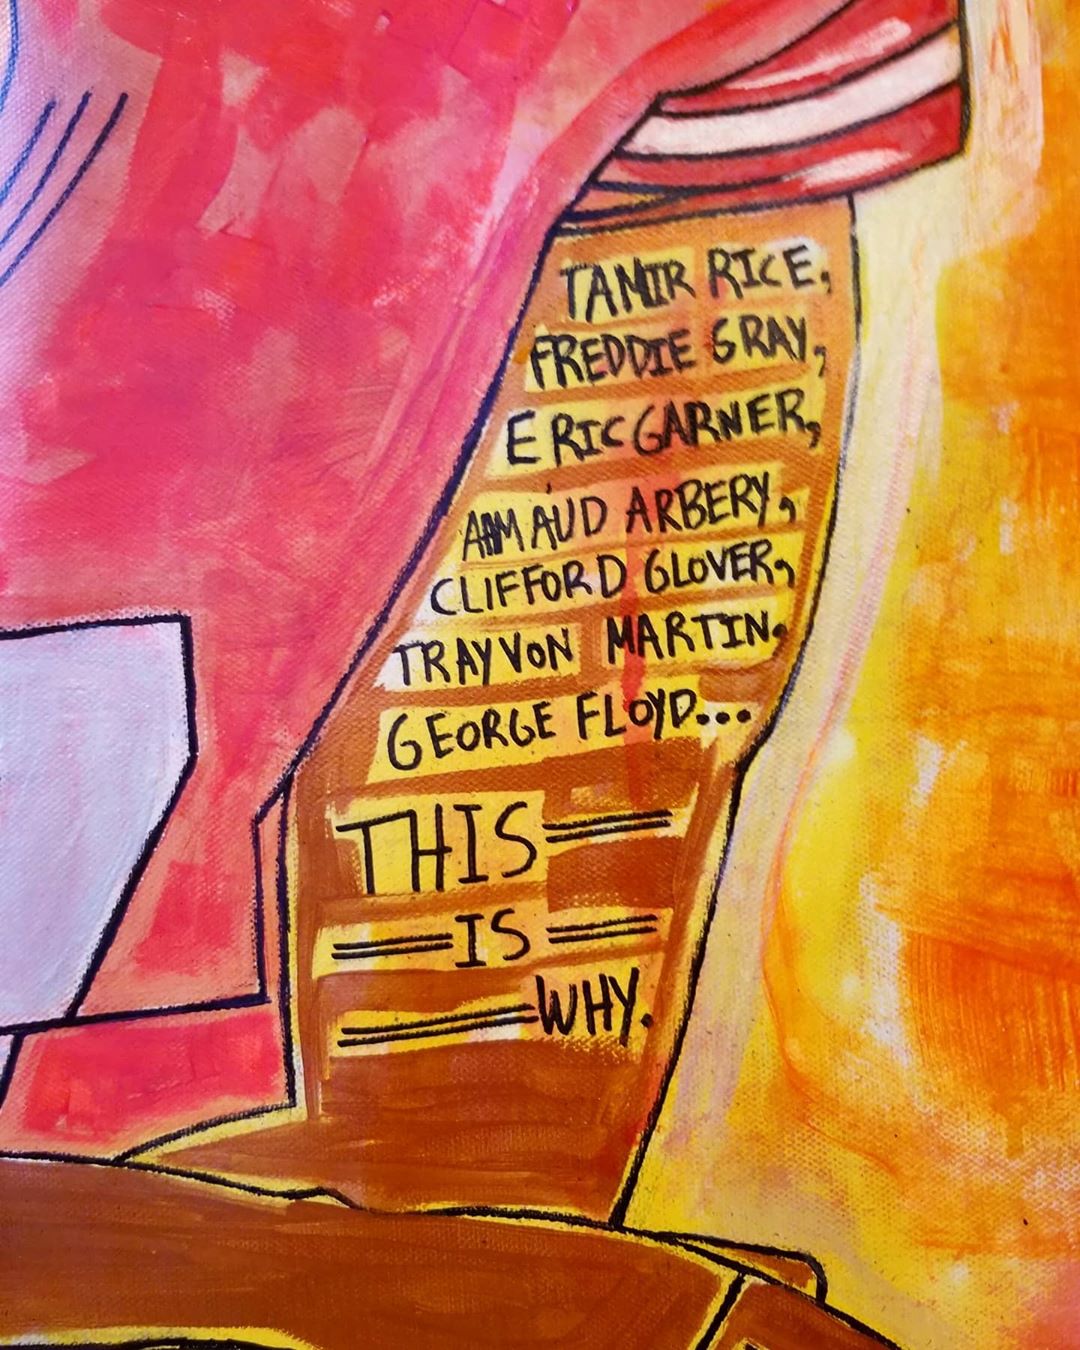 TAMIR RICE,
FREDDIE GRAY,
ERIC GARNER,
AHMAUD ARBERY,
CLIFFORD GLOVER,
TRAYVON MARTIN.
GEORGE FLOYD...
THIS
IS
WHY.